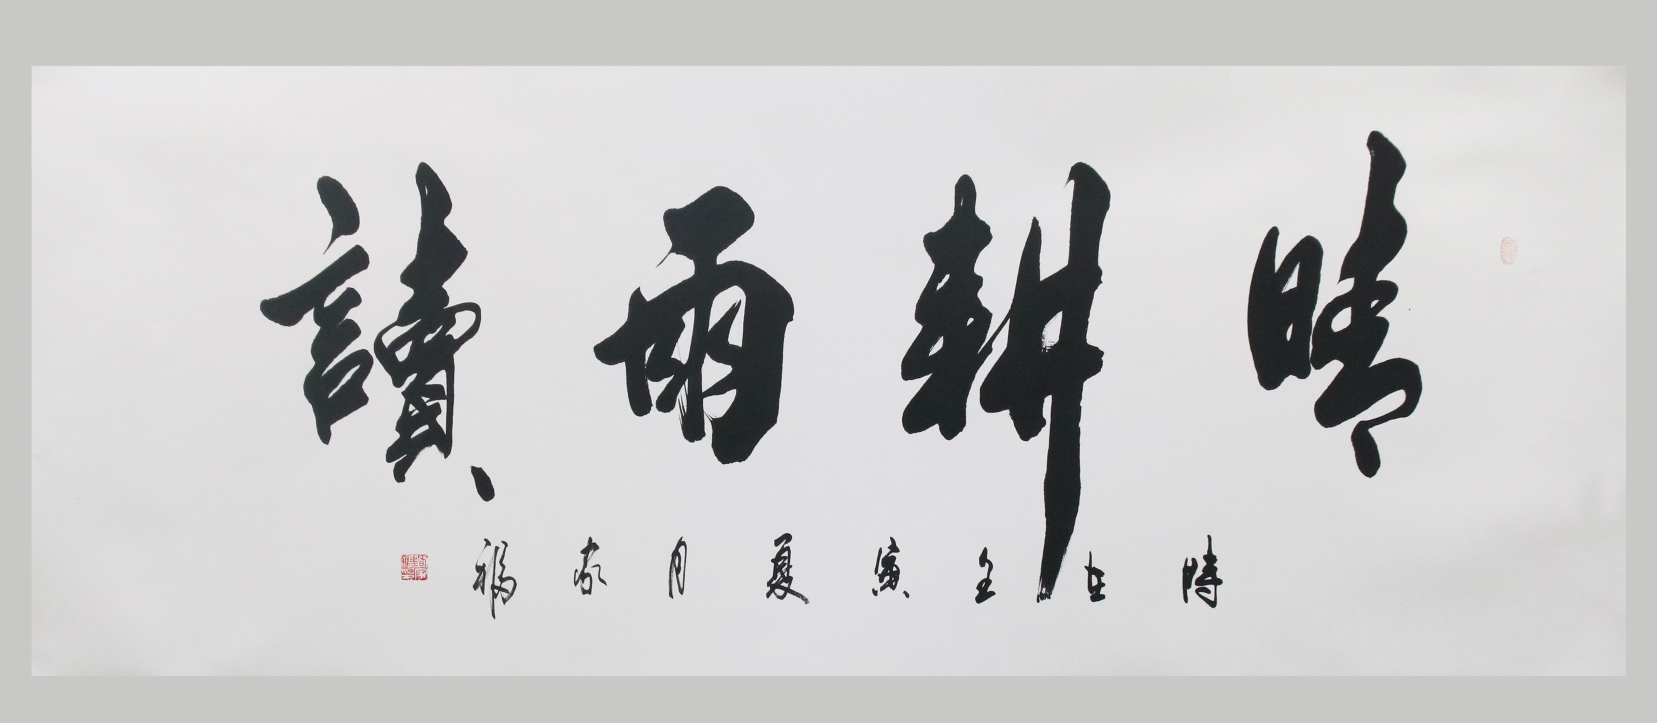 晴耕雨讀
時在壬寅夏月家福